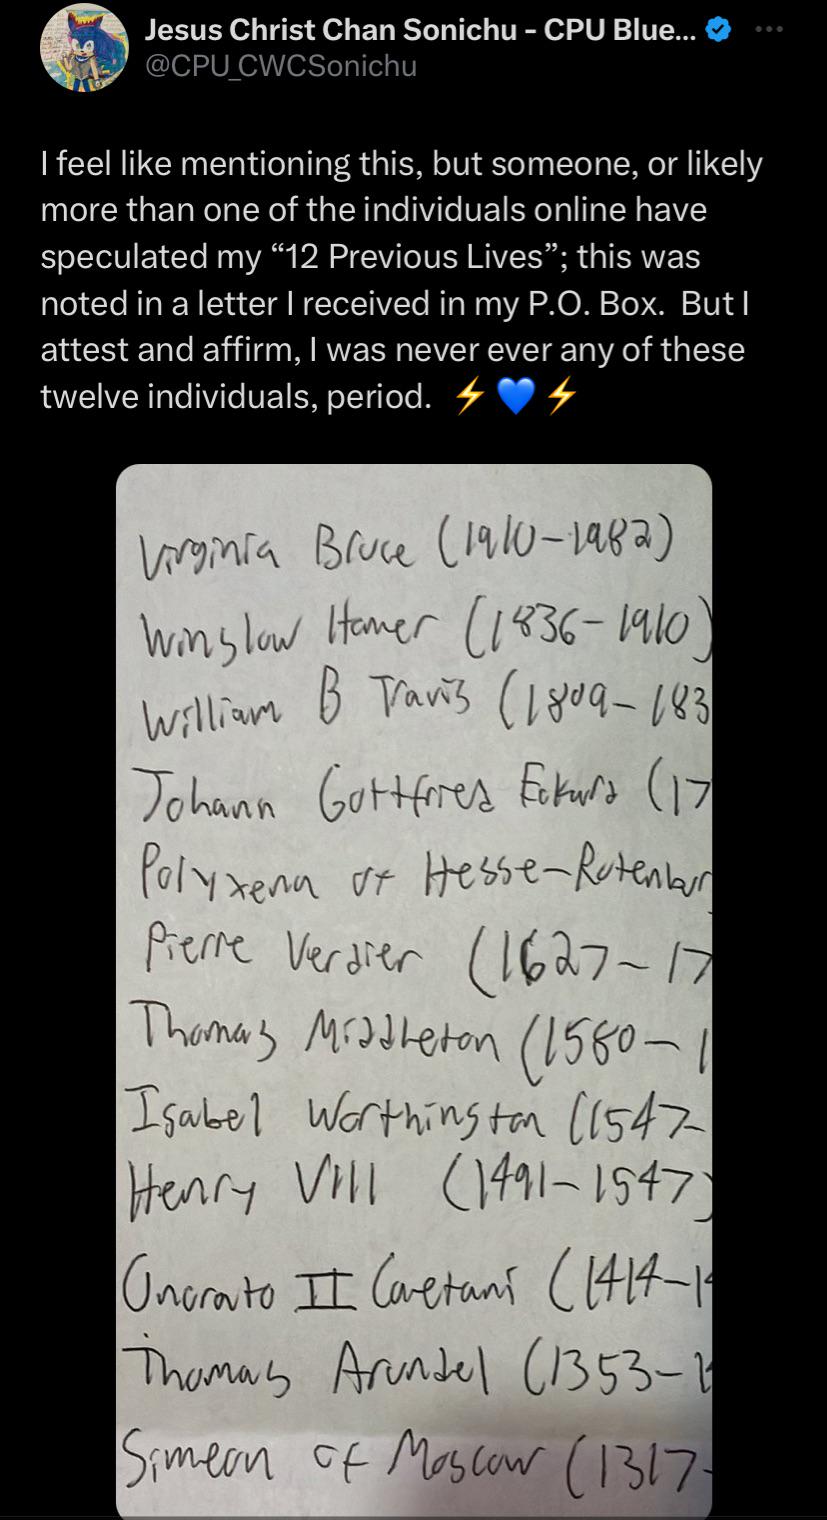 Jesus Christ Chan Sonichu - CPU Blue...
@CPU_CWCSonichu
I feel like mentioning this, but someone, or likely
more than one of the individuals online have
speculated my “12 Previous Lives”; this was
noted in a letter I received in my P.O. Box. But I
attest and affirm, I was never ever any of these
twelve individuals, period. ⚡💙⚡
Virginia Bruce (1910-1982)
Winslow Homer (1836-1910)
William B Travis (1809-183
Johann Gottfried (17
Polyxena of Hesse-Rotenbur
Pierre Verdier (1627-17
Thomas Middleton (1580-1
Isabel Worthington (1547-
Henry VIII (1491-1547)
Onorato II Caetani (1414-14
Thomas Arundel (1353-1
Simeon of Moscow (1317-